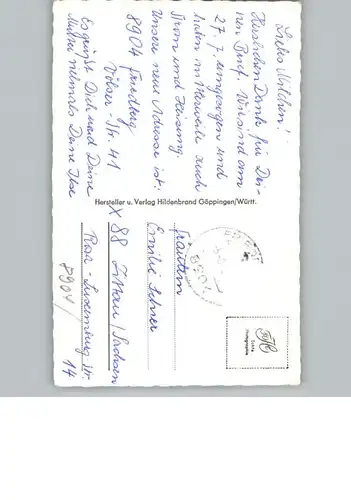 Liebes Milchen!
Herzlichen Dank für Dei-
nen Brief. Wir sind am
27. 7. umgezogen und
haben mittlerweile auch
Strom und Heizung.
Unsere neue Adresse ist:
8904 Friedberg
Völser-Str. 41
Es grüßt Dich und Deine
Mutter vielmals Deine Ilse
Hersteller u. Verlag Hildenbrand Göppingen/Württ.
Fräulein
Emilie
X 88 Zittau/Sachsen
Rosa-Luxemburg-Str.
14
8904/
Echte
Photographie